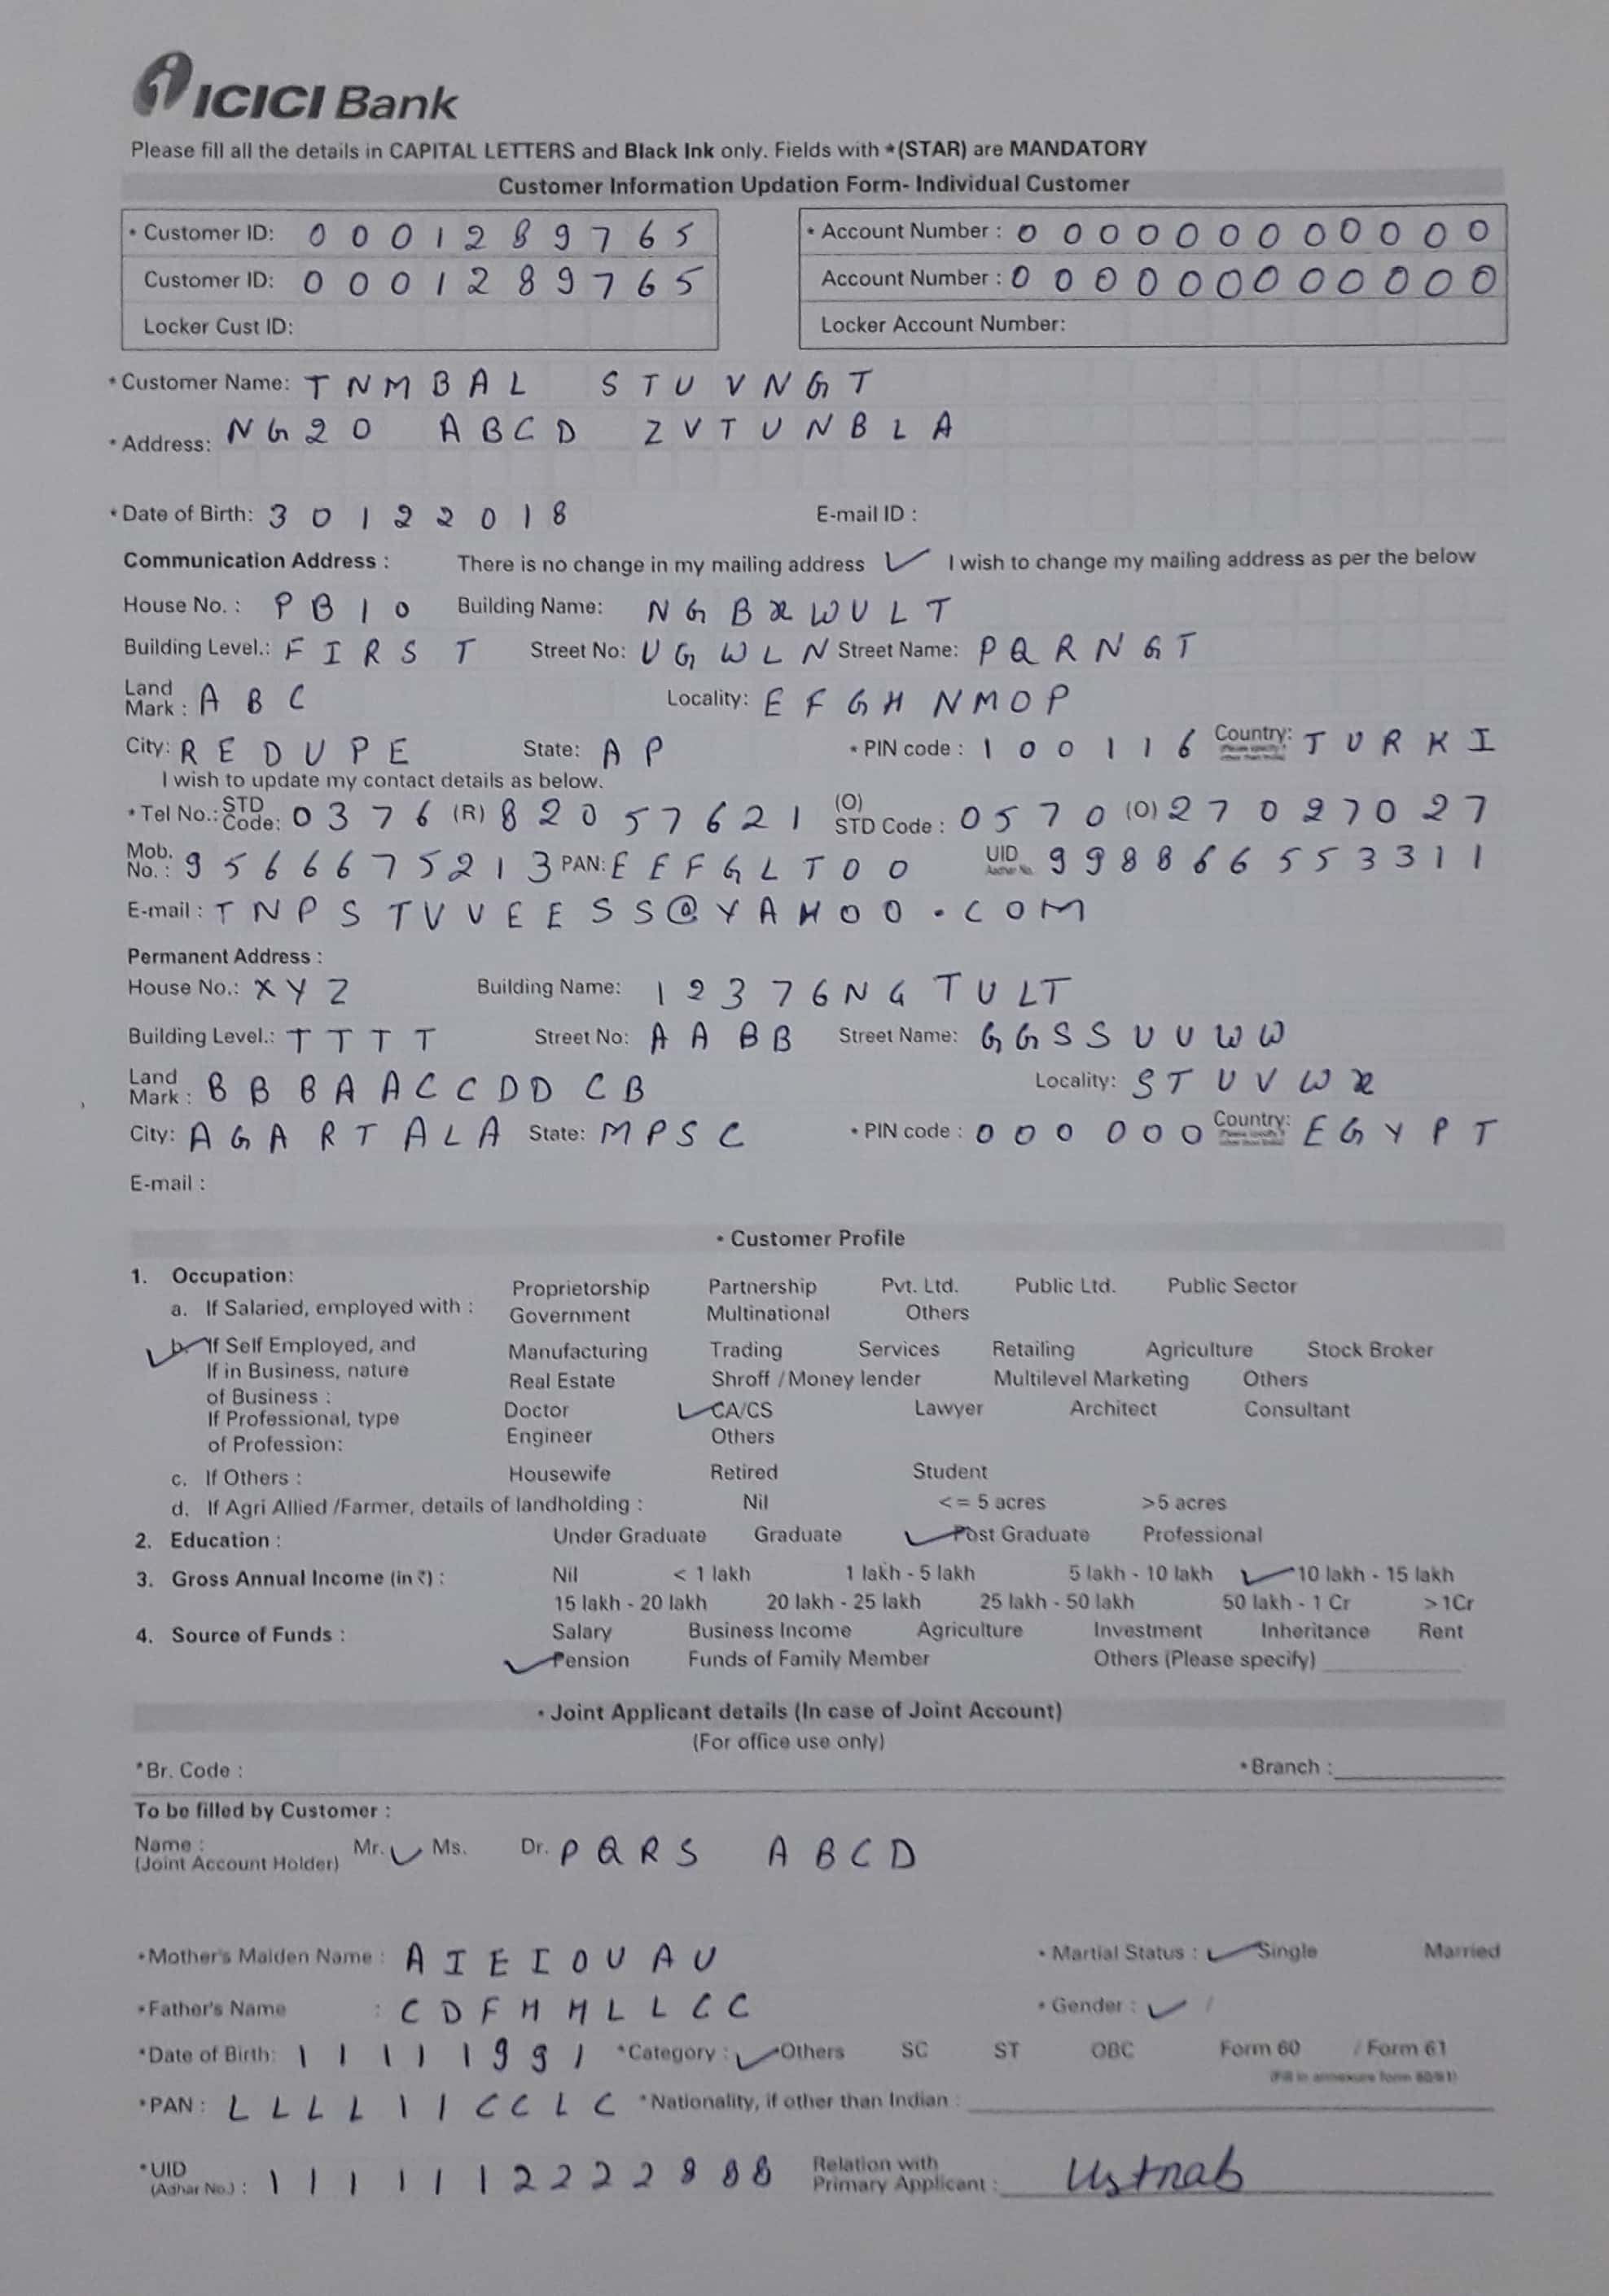 ICICI Bank
Please fill all the details in CAPITAL LETTERS and Black Ink only. Fields with *(STAR) are MANDATORY
Customer Information Updation Form- Individual Customer
* Customer ID: 0001289765 * Account Number : 000000000000
Customer ID: 0001289765 Account Number : 000000000000
Locker Cust ID: Locker Account Number:
* Customer Name: TNMBAL STUVNGT
* Address: NG20 ABCD ZVTUNBLA
* Date of Birth: 30122018 E-mail ID :
Communication Address : There is no change in my mailing address ✓ I wish to change my mailing address as per the below
House No. : PB10 Building Name: NGBXWULT
Building Level.: FIRST Street No: UGWLN Street Name: PQRNGT
Land Mark : ABC Locality: EFGHNMOP
City: REDUPE State: AP * PIN code : 100116 Country: TURKI
I wish to update my contact details as below.
* Tel No.: STD Code: 0376 (R) 82057621 (O) STD Code : 0570 (O) 27027027
Mob. No. : 9566675213 PAN: EEFGLTOO UID Aadhar No. 998866553311
E-mail : TNPSTVVEESS@YAHOO.COM
Permanent Address :
House No.: XYZ Building Name: 12376NGTULT
Building Level.: TTTT Street No: AABB Street Name: GGSSUUWW
Land Mark : BBBAACCDDCB Locality: STUVWX
City: AGARTALA State: MPSC * PIN code : 000000 Country: EGYPT
E-mail :
* Customer Profile
1. Occupation:
a. If Salaried, employed with : Proprietorship Partnership Pvt. Ltd. Public Ltd. Public Sector
Government Multinational Others
✓ b. If Self Employed, and If in Business, nature of Business : Manufacturing Trading Services Retailing Agriculture Stock Broker
Real Estate Shroff /Money lender Multilevel Marketing Others
If Professional, type of Profession: Doctor ✓ CA/CS Lawyer Architect Consultant
Engineer Others
c. If Others : Housewife Retired Student
d. If Agri Allied /Farmer, details of landholding : Nil <= 5 acres >5 acres
2. Education : Under Graduate Graduate ✓ Post Graduate Professional
3. Gross Annual Income (in ₹) : Nil < 1 lakh 1 lakh - 5 lakh 5 lakh - 10 lakh ✓ 10 lakh - 15 lakh
15 lakh - 20 lakh 20 lakh - 25 lakh 25 lakh - 50 lakh 50 lakh - 1 Cr >1Cr
4. Source of Funds : Salary Business Income Agriculture Investment Inheritance Rent
✓ Pension Funds of Family Member Others (Please specify)
* Joint Applicant details (In case of Joint Account)
(For office use only)
*Br. Code : * Branch :
To be filled by Customer :
Name : (Joint Account Holder) Mr. ✓ Ms. Dr. PQRS ABCD
*Mother's Maiden Name : AIEIOUAU * Martial Status : ✓ Single Married
*Father's Name : CDFHHLLCC * Gender : ✓ /
*Date of Birth: 11111991 *Category : ✓ Others SC ST OBC Form 60 / Form 61
(Fill in annexure form 60/61)
*PAN : LLLL11CCLC *Nationality, if other than Indian :
*UID (Adhar No.) : 1111112222888 Relation with Primary Applicant :